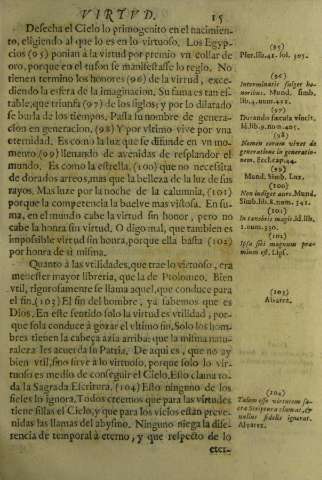 VIRTVD. 15
Desecha el Cielo lo primogenito en el nacimien-
to, eligiendo al que lo es en lo virtuoso. Los Egyp-
cios (95) ponian à la virtud por premio vn collar de
oro, porque en el tuson se manifestasse lo regio. No
tienen termino los honores (96) de la virtud, exce-
diendo la esfera de la imaginacion. Su fama es tan es-
table, que triunfa (97) de los siglos; y por lo dilatado
se burla de los tiempos. Passa su nombre de gene-
racion en generacion, (98) Y por vltimo vive por vna
eternidad. Es como la luz que se difunde en vn mo-
mento (99) llenando de avenidas de resplandor el
mundo. Es como la estrella, (100) que no necessita
de dorados arreos, mas que la belleza de la luz de sus
rayos. Mas luze por la noche de la calumnia, (101)
porque la competencia la buelve mas vistosa. En su-
ma, en el mundo cabe la virtud sin honor, pero no
cabe la honra sin virtud. O digo mal, que tambien es
impossible virtud sin honra, porque ella basta (102)
por honra de si misma.
Quanto à las vtilidades, que trae lo virtuoso, era
menester mayor libreria, que la de Ptolomeo. Bien
vtil, rigorosamente se llama aquel, que conduce para
el fin. (103) El fin del hombre, yà sabemos que es
Dios. En este sentido solo la virtud es vtilidad, por-
que sola conduce à gozar el vltimo fin. Solo los hom-
bres tienen la cabeça azia arriba: que la misma natu-
raleza les acuerda su Patria. De aqui es, que no ay
bien vtil, sino sirve à lo virtuoso, porque solo lo vir-
tuoso es medio de conseguir el Cielo. Esto clama to-
da la Sagrada Escritura. (104) Esto ninguno de los
fieles lo ignora. Todos creemos que para las virtudes
tiene sillas el Cielo, y que para los vicios estàn preve-
nidas las llamas del abysmo. Ninguno niega la dife-
rencia de temporal à eterno, y que respecto de lo
eter-
(95)
Pier. lib. 41. fol. 305.
(96)
Interminatis fulget ho-
noribus. Mund. Simb.
lib. 4. num. 422.
(97)
Durando sæcula vincit.
Id. lib. 9. num. 401.
(98)
Nomen eorum vivet de
generatione in generatio-
nem. Eccl. cap. 44.
(99)
Mund. Simb. Lux.
(100)
Non indiget auro. Mund.
Simb. lib. 8. num. 141.
(101)
In tenebris magis. Id. lib.
1. num. 330.
(102)
Ipsa sibi magnum præ-
mium est. Lips.
(103)
Alvarez.
(104)
Talem esse virtutem sa-
cra Scriptura clamat, &
nullus fidelis ignorat.
Alvarez.